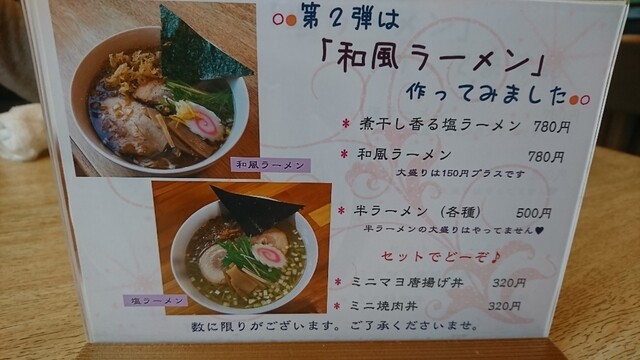 第2弾は
「和風ラーメン」
作ってみました
* 煮干し香る塩ラーメン 780円
* 和風ラーメン 780円
大盛りは150円プラスです
* 半ラーメン (各種) 500円
半ラーメンの大盛りはやってません♥
セットでどーぞ♪
* ミニマヨ唐揚げ丼 320円
* ミニ焼肉丼 320円
数に限りがございます。ご了承くださいませ。
和風ラーメン
塩ラーメン